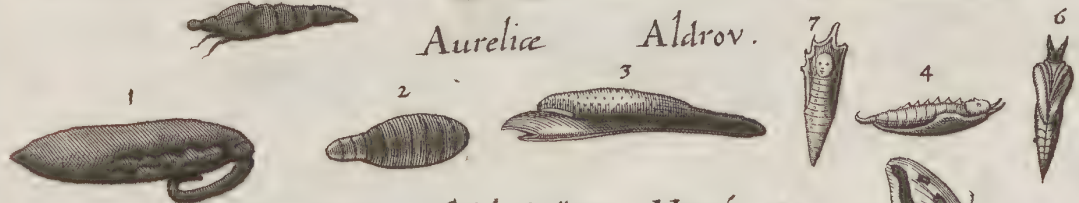 Aureliæ Aldrov.
7
6
1
2
3
4